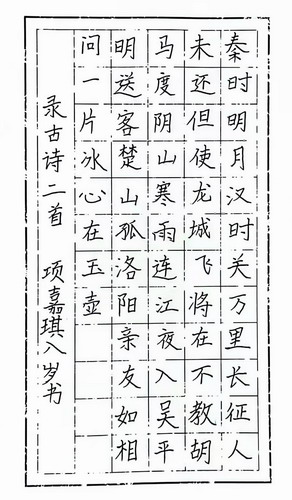 秦时明月汉时关万里长征人
未还但使龙城飞将在不教胡
马度阴山寒雨连江夜入吴平
明送客楚山孤洛阳亲友如相
问一片冰心在玉壶
录古诗二首 项嘉琪八岁书